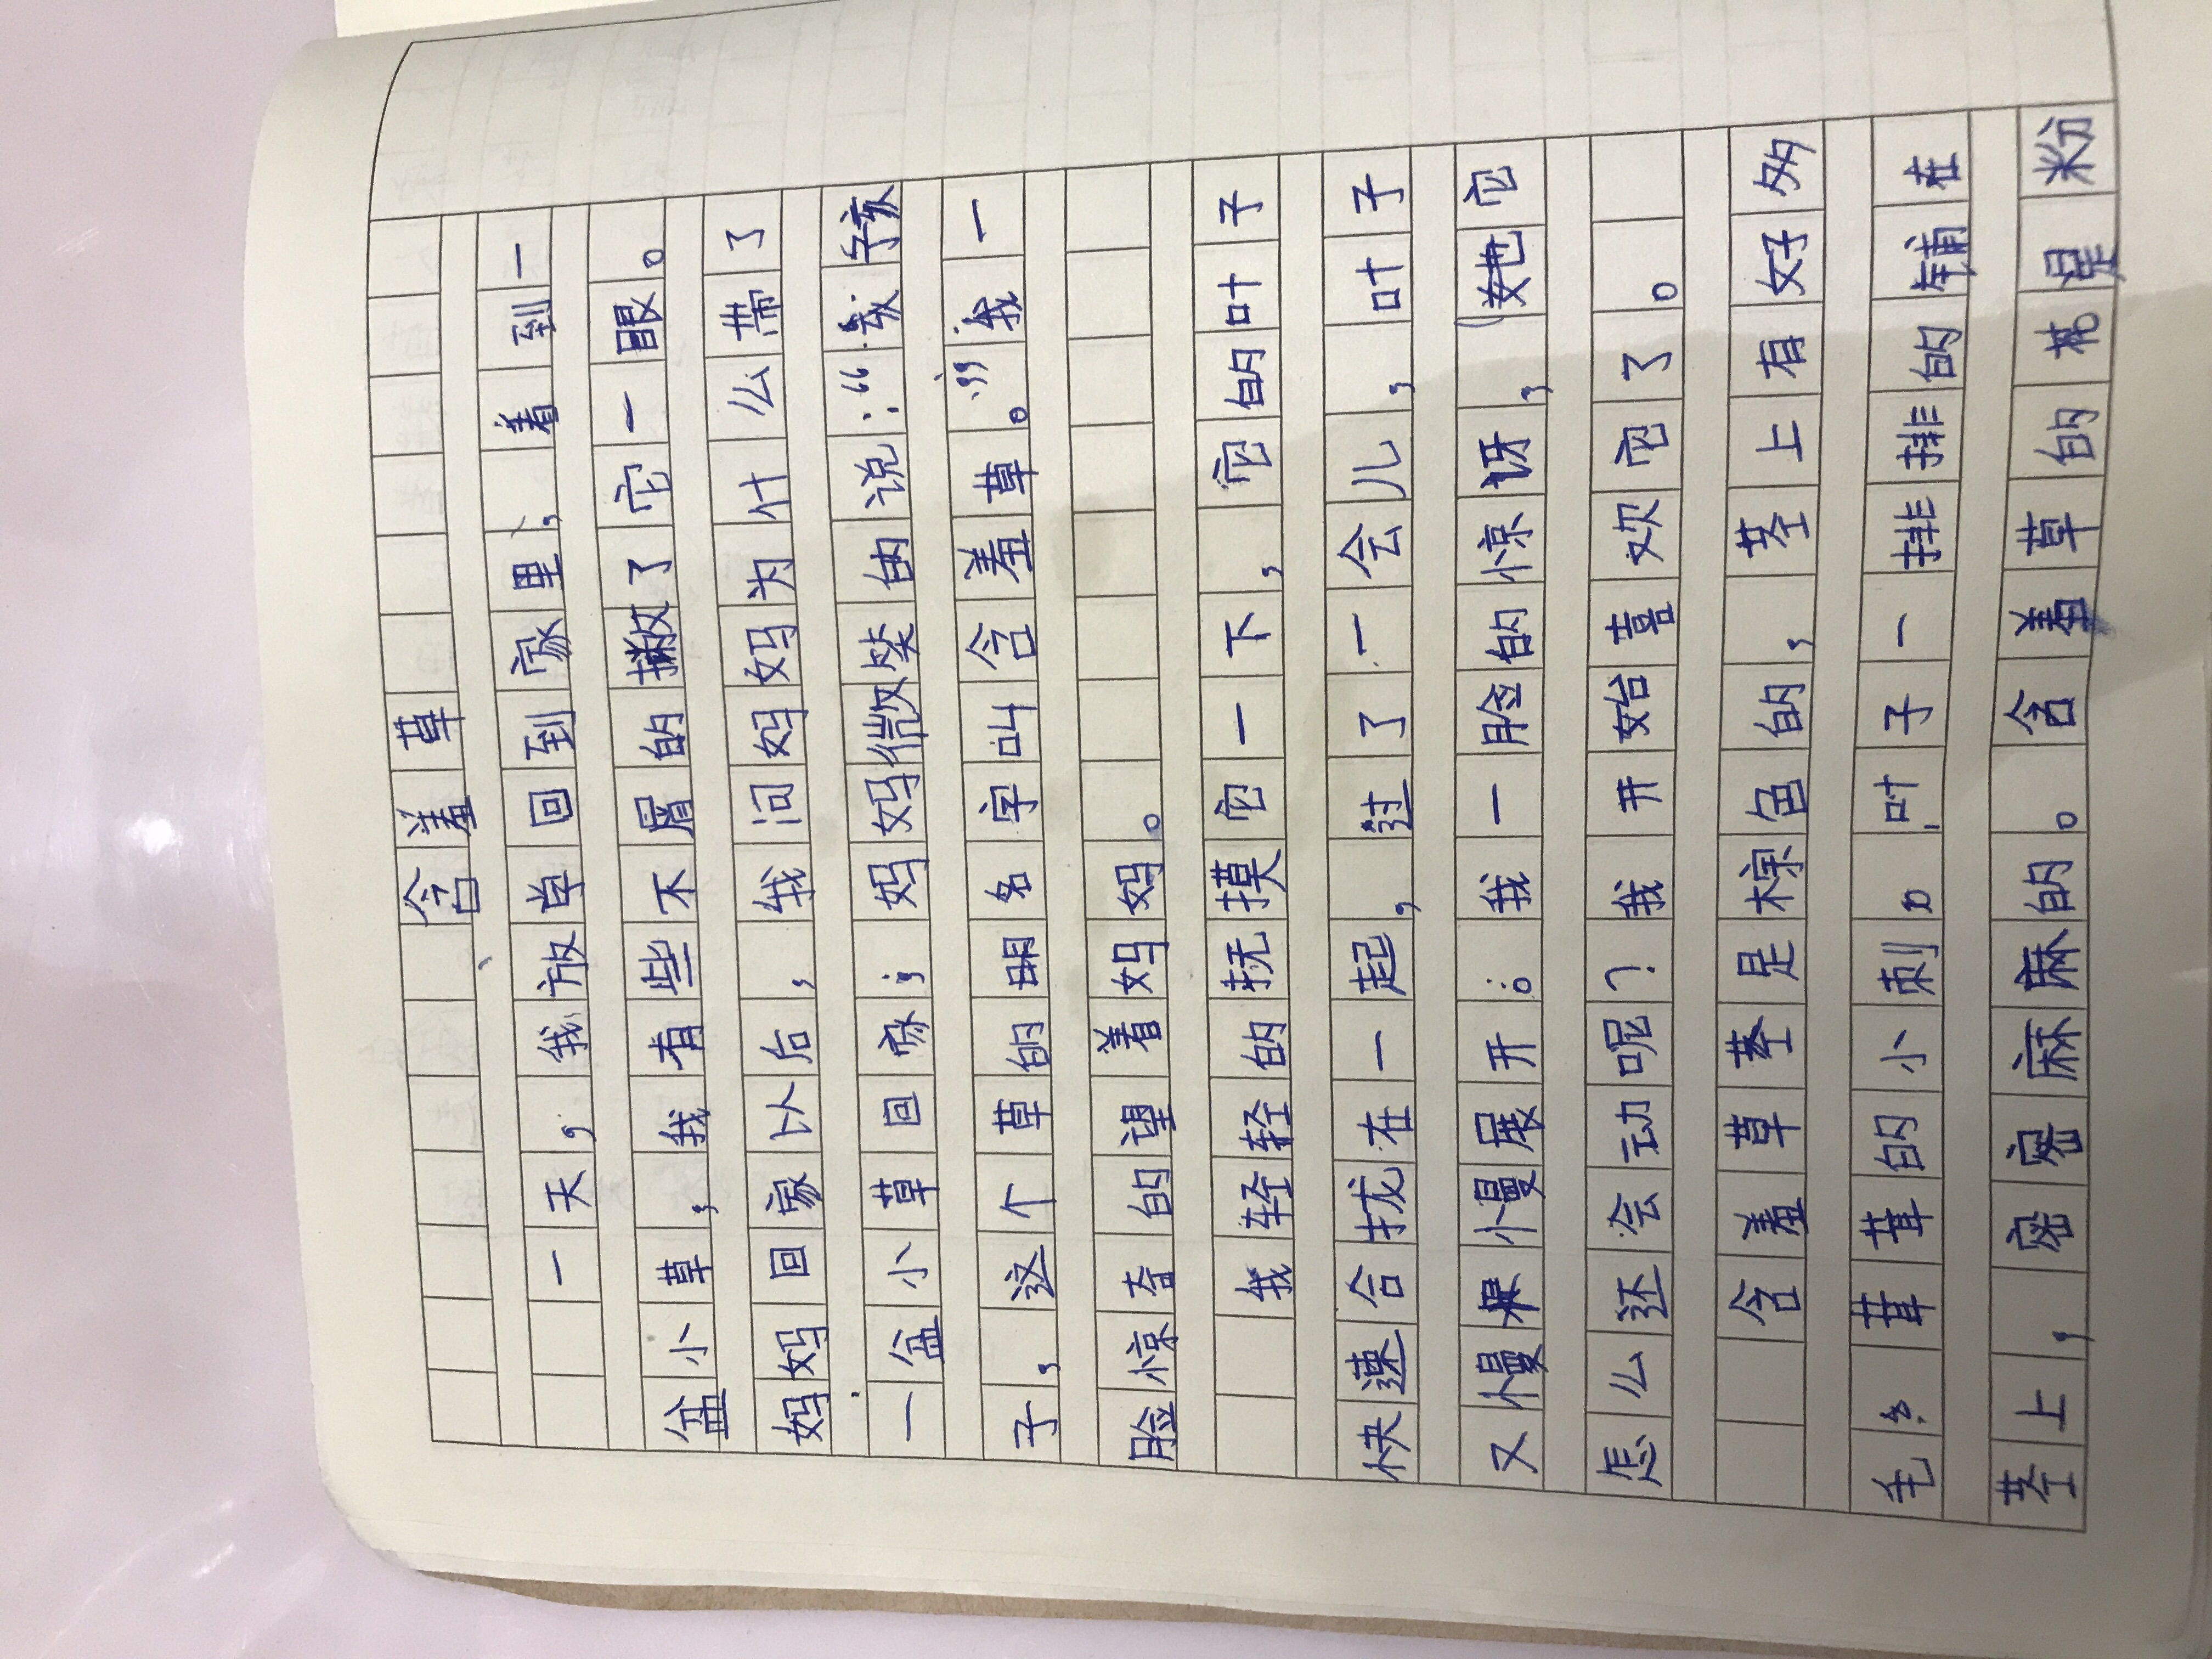 含羞草
一天,我放学回到家里,着到一
盆小草,我有些不屑的撇了它一眼。
妈妈回家以后,我问妈妈为什么带了
一盆小草回家;妈妈微笑的说:“孩
子,这个草的名字叫含羞草。”我一
脸惊奇的望着妈妈。
我轻轻的抚摸它一下,它的叶子
快速合拢在一起,过了一会儿,叶子
又慢慢展开。我一脸的惊讶,它
怎么还会动呢?我开始喜欢它了。
含羞草茎是棕色的,茎上有好多
毛茸茸的小刺。叶子一排排的铺在
茎上,密密麻麻的。含羞草的花是粉